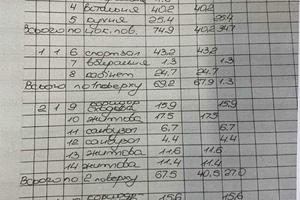 4 вітальня 40.2 40.2
5 кухня 25.4 25.4
Всього по цок. пов. 74.9 40.2 34.7
1 1 6 спортзал 43.2 43.2
7 вбиральня 1.3 1.3
8 кабінет 24.7 24.7
Всього по 1 поверху 69.2 67.9 1.3
2 1 9 коридор 15.9 15.9
10 житлова 17.5 17.5
11 санвузол 6.7 6.7
12 санвузол 4.4 4.4
13 житлова 11.6 11.6
14 житлова 11.4 11.4
Всього по 2 поверху 67.5 40.5 27.0
коридор 15.6 15.6